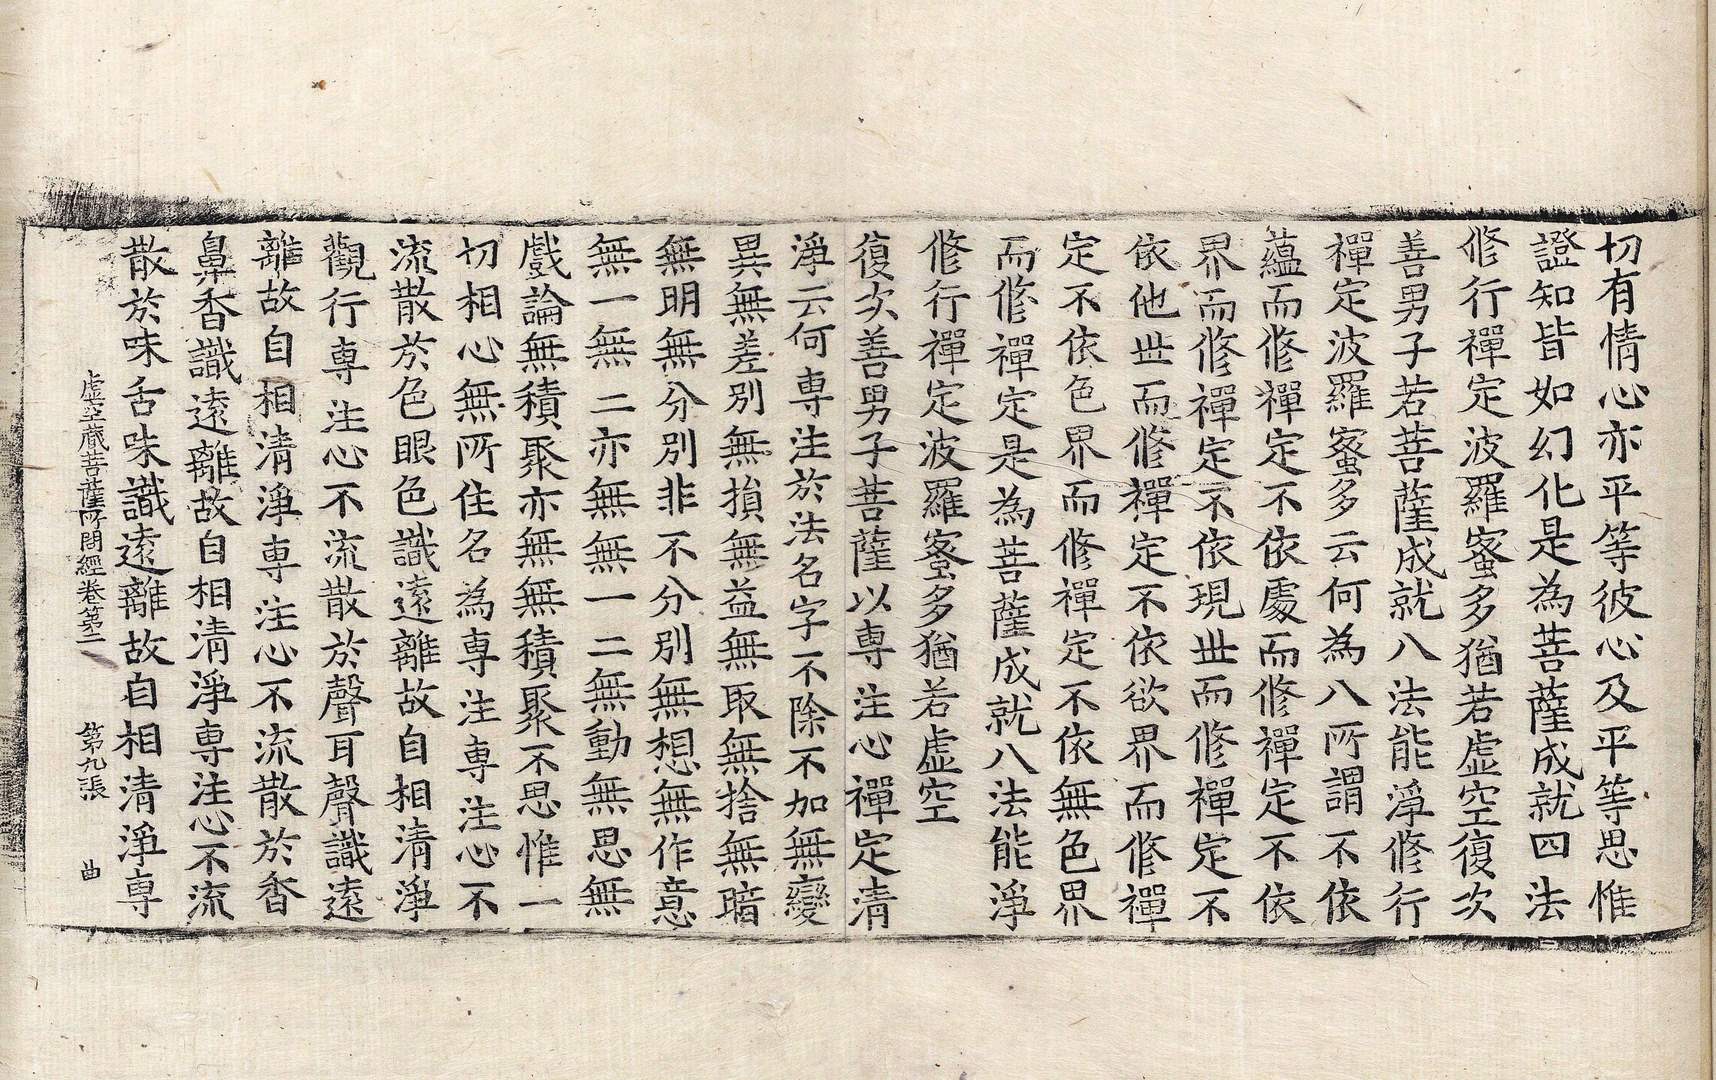 切有情心亦平等彼心及平等思惟
證知皆如幻化是為菩薩成就四法
修行禪定波羅蜜多猶若虛空復次
善男子若菩薩成就八法能淨修行
禪定波羅蜜多云何為八所謂不依
蘊而修禪定不依處而修禪定不依
界而修禪定不依現世而修禪定不
依他世而修禪定不依欲界而修禪
定不依色界而修禪定不依無色界
而修禪定是為菩薩成就八法能淨
修行禪定波羅蜜多猶若虛空
復次善男子菩薩以專注心禪定清
淨云何專注於法名字不除不加無變
異無差別無損無益無取無捨無暗
無明無分別非不分別無想無作意
無一無二亦無無一二無動無思無
戲論無積聚亦無無積聚不思惟一
切相心無所住名為專注專注心不
流散於色眼色識遠離故自相清淨
觀行專注心不流散於聲耳聲識遠
離故自相清淨專注心不流散於香
鼻香識遠離故自相清淨專注心不流
散於味舌味識遠離故自相清淨專
虛空藏菩薩所問經卷第二 第九張 曲